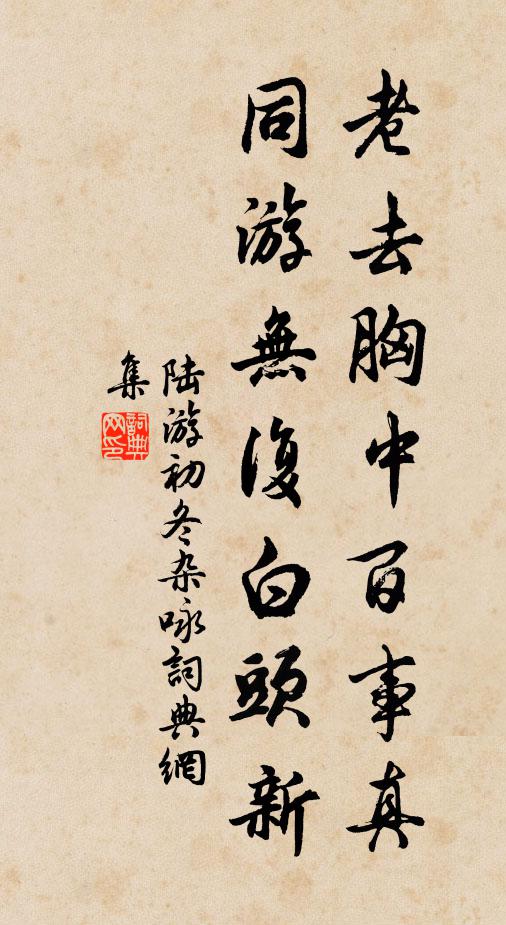 老去胸中百事真
同游無復白頭新
陆游初冬杂咏詞典網
集
詞典网印